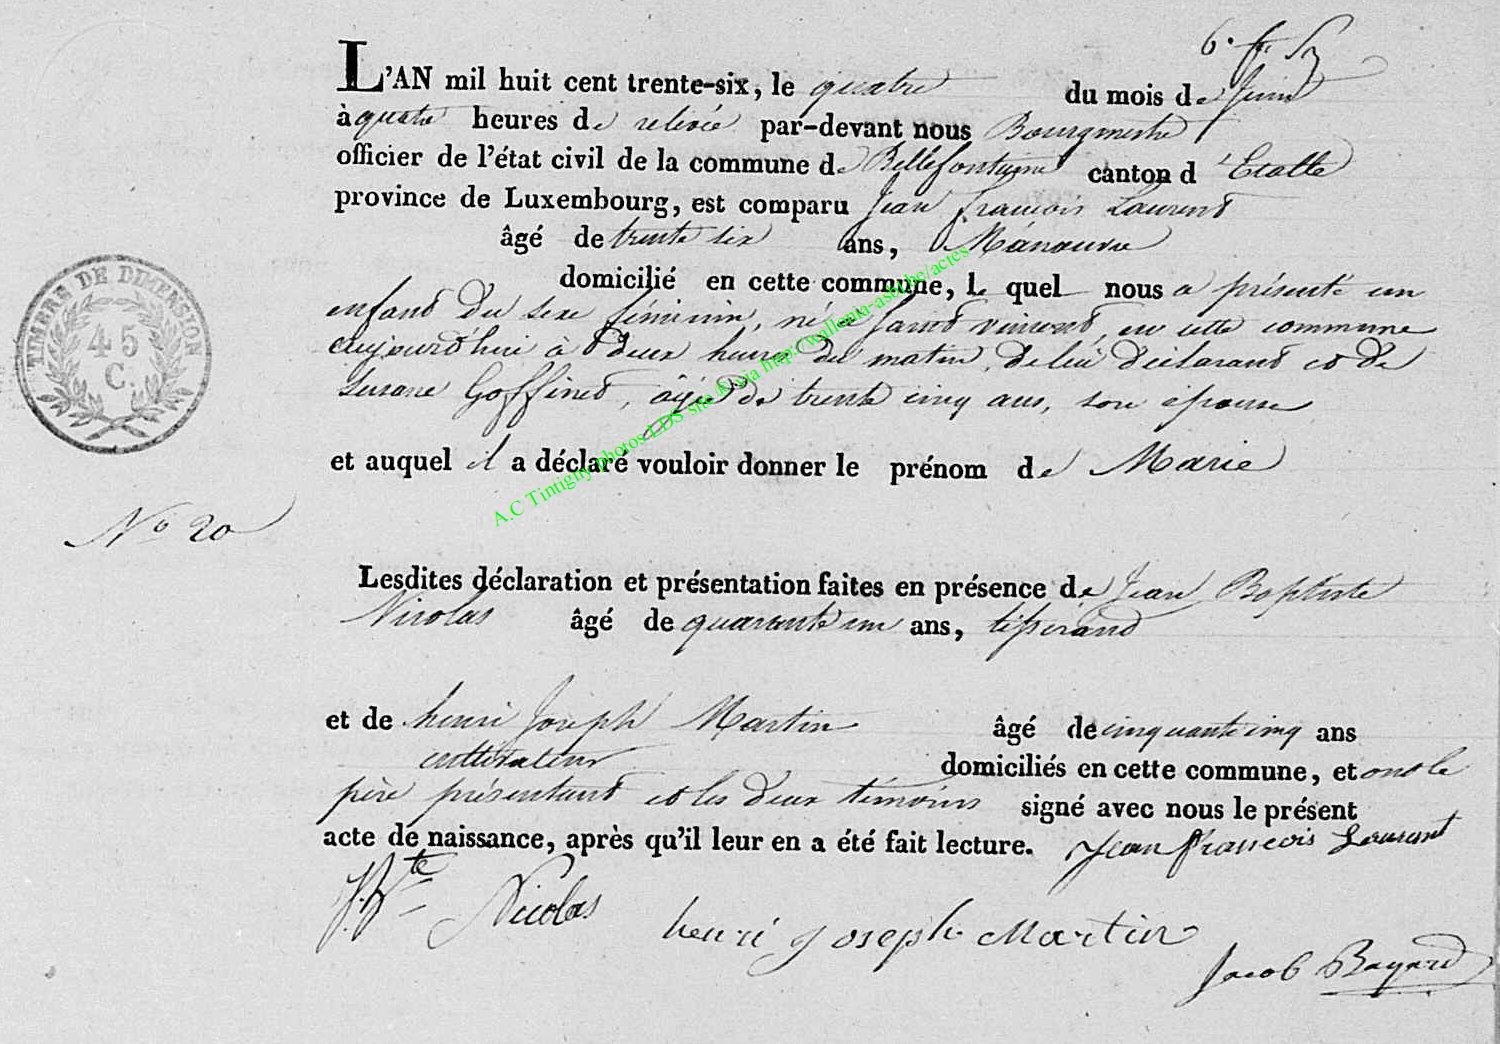 L'AN mil huit cent trente-six, le quatre du mois de Juin
à quatre heures de relevée par-devant nous Bourgmestre
officier de l'état civil de la commune de Bellefontaine canton d'Etalle
province de Luxembourg, est comparu Jean françois Laurent
âgé de trente six ans, Manœuvre
domicilié en cette commune, le quel nous a présenté un
enfant du sexe féminin, né à Saint vincent, en cette commune
aujourd'hui à deux heures du matin, de lui déclarant et de
Susane Goffinet, âgée de trente cinq ans, son épouse
et auquel il a déclaré vouloir donner le prénom de Marie
A.C Tintigny photos LDS site & via http://wallonia-asbl.be/actes
TIMBRE DE DIMENSION
45
C.
N° 20
Lesdites déclaration et présentation faites en présence de Jean Baptiste
Nicolas âgé de quarante un ans, tisserand
et de henri Joseph Martin âgé de cinquante cinq ans
cultivateur domiciliés en cette commune, et ont le
père présentant et les deux témoins signé avec nous le présent
acte de naissance, après qu'il leur en a été fait lecture. Jean françois Laurent
J.Bte Nicolas
henri Joseph Martin
Jacob Bayard